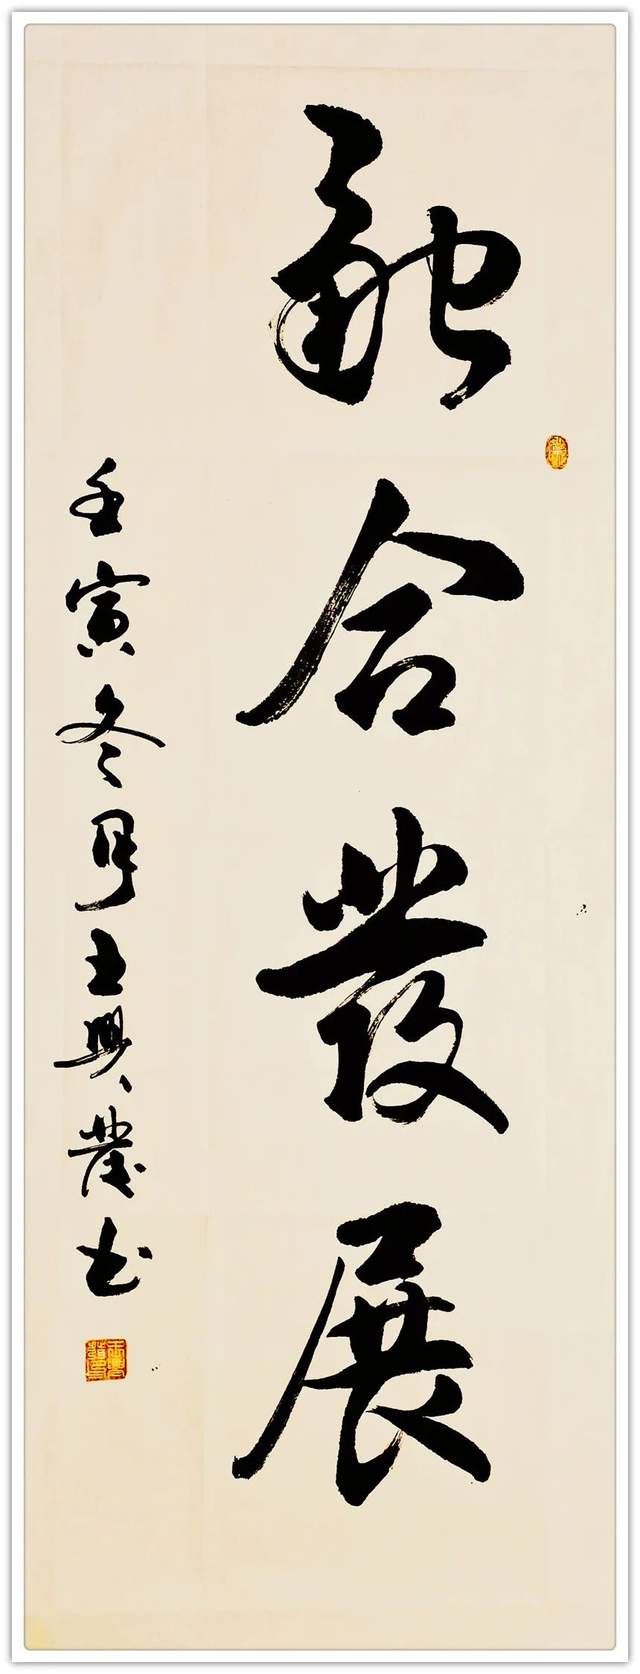 融合發展
壬寅冬月王興書